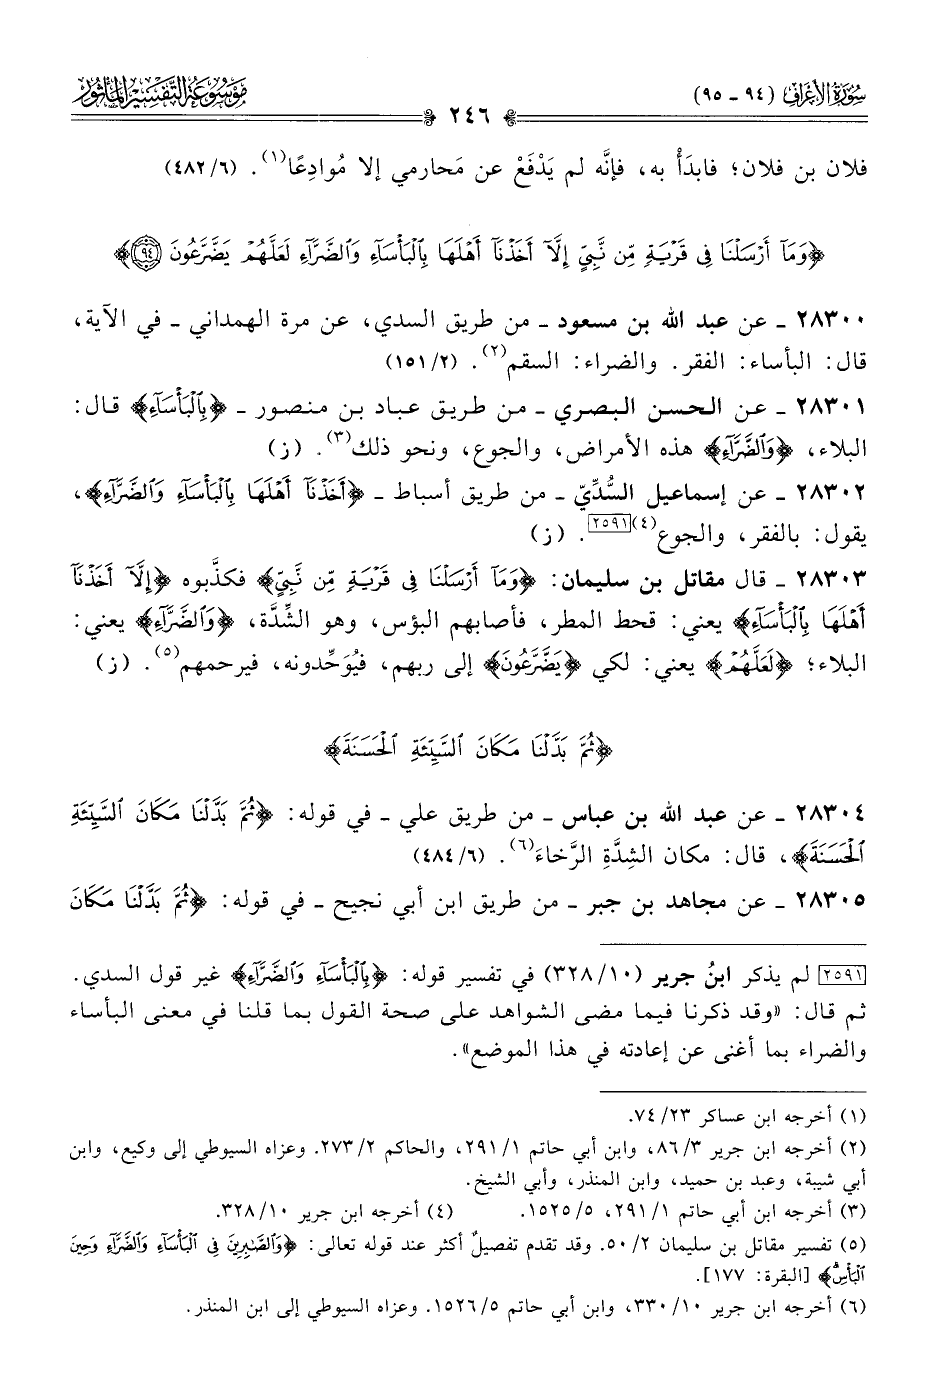 سورة الأعراف (٩٤ - ٩٥)
موسوعة التفسير المأثور
٢٤٦
فلان بن فلان؛ فابدَأْ به، فإنَّه لم يَدْفَعْ عن مَحارمي إلا مُوادِعًا(١). (٦/٤٨٢)
﴿وَمَآ أَرْسَلْنَا فِى قَرْيَةٍ مِّن نَّبِىٍّ إِلَّآ أَخَذْنَآ أَهْلَهَا بِٱلْبَأْسَآءِ وَٱلضَّرَّآءِ لَعَلَّهُمْ يَضَّرَّعُونَ ٩٤﴾
٢٨٣٠٠ ـ عن عبد الله بن مسعود ـ من طريق السدي، عن مرة الهمداني ـ في الآية،
قال: البأساء: الفقر. والضراء: السقم(٢). (٢/١٥١)
٢٨٣٠١ ـ عن الحسن البصري ـ من طريق عباد بن منصور ـ ﴿بِٱلْبَأْسَآءِ﴾ قال:
البلاء، ﴿وَٱلضَّرَّآءِ﴾ هذه الأمراض، والجوع، ونحو ذلك(٣). (ز)
٢٨٣٠٢ ـ عن إسماعيل السُّدِّيّ ـ من طريق أسباط ـ ﴿أَخَذْنَآ أَهْلَهَا بِٱلْبَأْسَآءِ وَٱلضَّرَّآءِ﴾،
يقول: بالفقر، والجوع(٤)[٢٥٩١]. (ز)
٢٨٣٠٣ ـ قال مقاتل بن سليمان: ﴿وَمَآ أَرْسَلْنَا فِى قَرْيَةٍ مِّن نَّبِىٍّ﴾ فكذَّبوه ﴿إِلَّآ أَخَذْنَآ
أَهْلَهَا بِٱلْبَأْسَآءِ﴾ يعني: قحط المطر، فأصابهم البؤس، وهو الشِّدَّة، ﴿وَٱلضَّرَّآءِ﴾ يعني:
البلاء؛ ﴿لَعَلَّهُمْ﴾ يعني: لكي ﴿يَضَّرَّعُونَ﴾ إلى ربهم، فيُوَحِّدونه، فيرحمهم(٥). (ز)
﴿ثُمَّ بَدَّلْنَا مَكَانَ ٱلسَّيِّئَةِ ٱلْحَسَنَةَ﴾
٢٨٣٠٤ ـ عن عبد الله بن عباس ـ من طريق علي ـ في قوله: ﴿ثُمَّ بَدَّلْنَا مَكَانَ ٱلسَّيِّئَةِ
ٱلْحَسَنَةَ﴾، قال: مكان الشِدَّةِ الرَّخاءَ(٦). (٦/٤٨٤)
٢٨٣٠٥ ـ عن مجاهد بن جبر ـ من طريق ابن أبي نجيح ـ في قوله: ﴿ثُمَّ بَدَّلْنَا مَكَانَ
[٢٥٩١] لم يذكر ابنُ جرير (١٠/٣٢٨) في تفسير قوله: ﴿بِٱلْبَأْسَآءِ وَٱلضَّرَّآءِ﴾ غير قول السدي.
ثم قال: «وقد ذكرنا فيما مضى الشواهد على صحة القول بما قلنا في معنى البأساء
والضراء بما أغنى عن إعادته في هذا الموضع».
(١) أخرجه ابن عساكر ٢٣/٧٤.
(٢) أخرجه ابن جرير ٣/٨٦، وابن أبي حاتم ١/٢٩١، والحاكم ٢/٢٧٣. وعزاه السيوطي إلى وكيع، وابن
أبي شيبة، وعبد بن حميد، وابن المنذر، وأبي الشيخ.
(٣) أخرجه ابن أبي حاتم ١/٢٩١، ٥/١٥٢٥. (٤) أخرجه ابن جرير ١٠/٣٢٨.
(٥) تفسير مقاتل بن سليمان ٢/٥٠. وقد تقدم تفصيلٌ أكثر عند قوله تعالى: ﴿وَٱلصَّٰبِرِينَ فِى ٱلْبَأْسَآءِ وَٱلضَّرَّآءِ وَحِينَ
ٱلْبَأْسِ﴾ [البقرة: ١٧٧].
(٦) أخرجه ابن جرير ١٠/٣٣٠، وابن أبي حاتم ٥/١٥٢٦. وعزاه السيوطي إلى ابن المنذر.